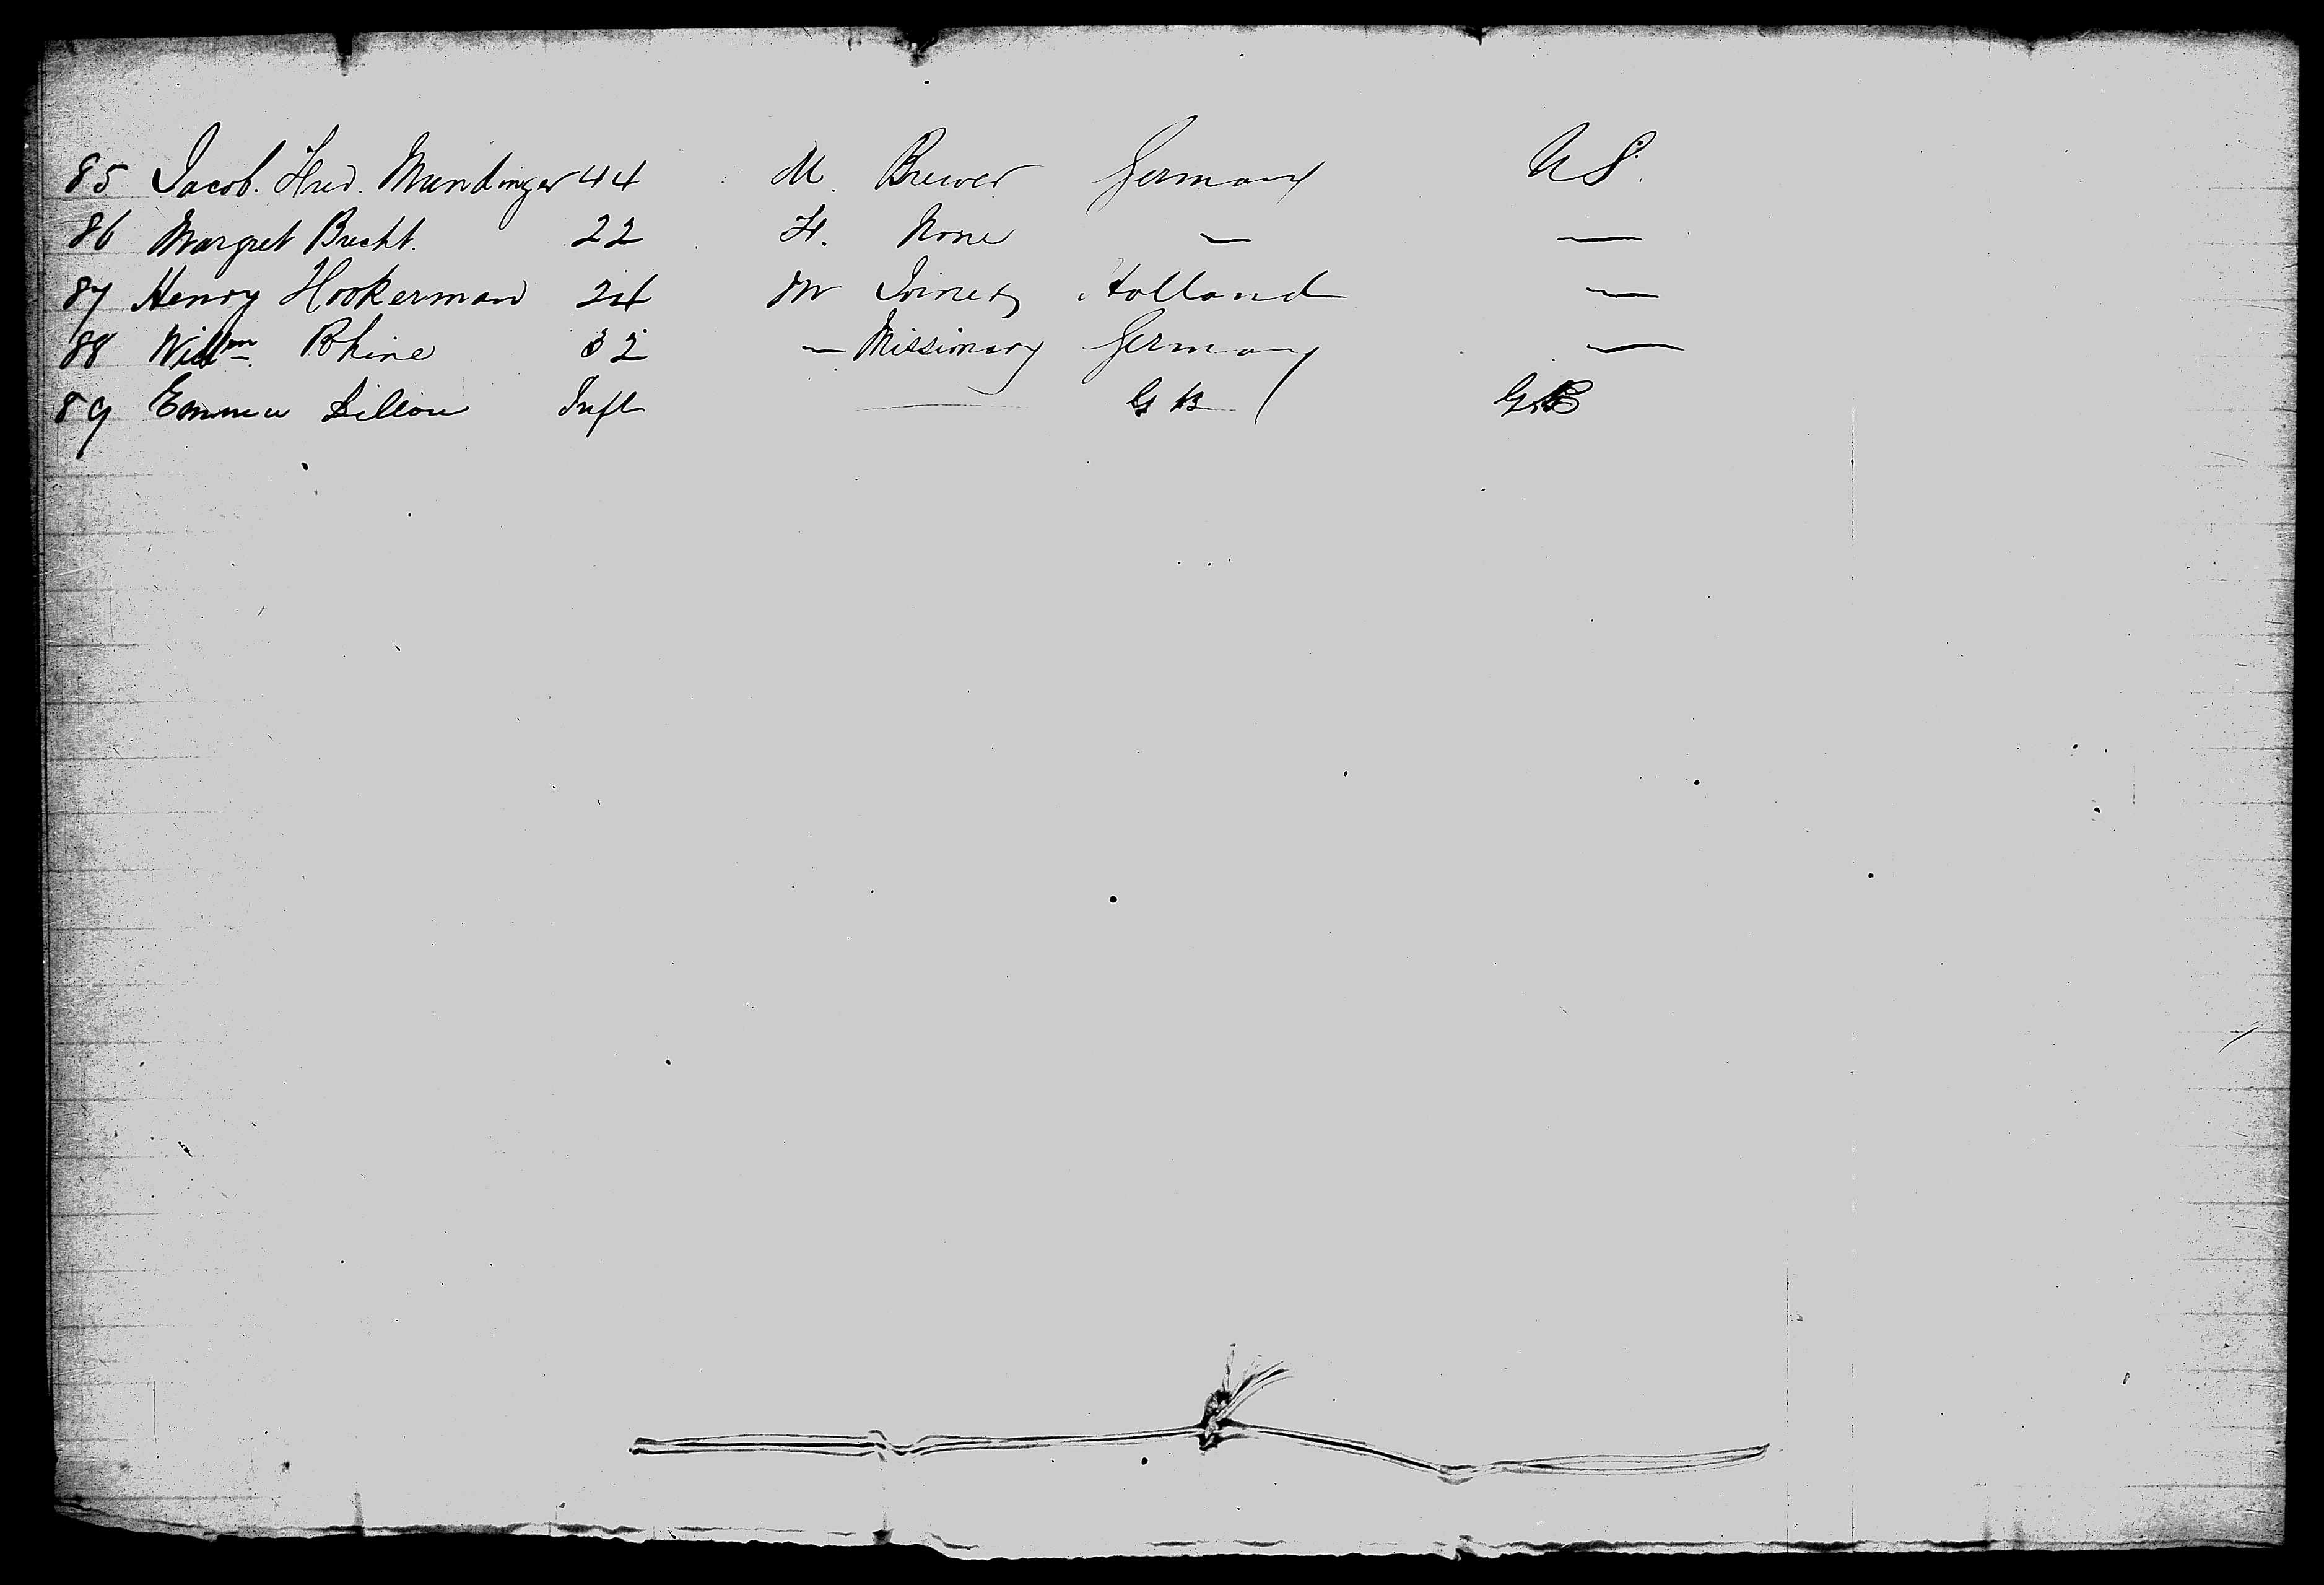 85 Jacob. Fred. Mundinger 44 M. Brewer Germany U S.
86 Margret Brecht. 22 F. None — —
87 Henry Hookerman 24 M Joiner Holland —
88 Willm Rhine 32 — Missionary Germany —
89 Emma Dillon Inft — G B G.B